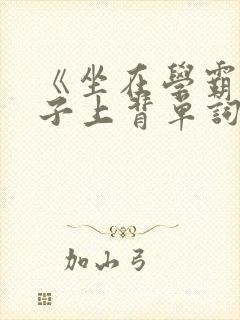 《坐在學霸
子上背單詞
加山弓